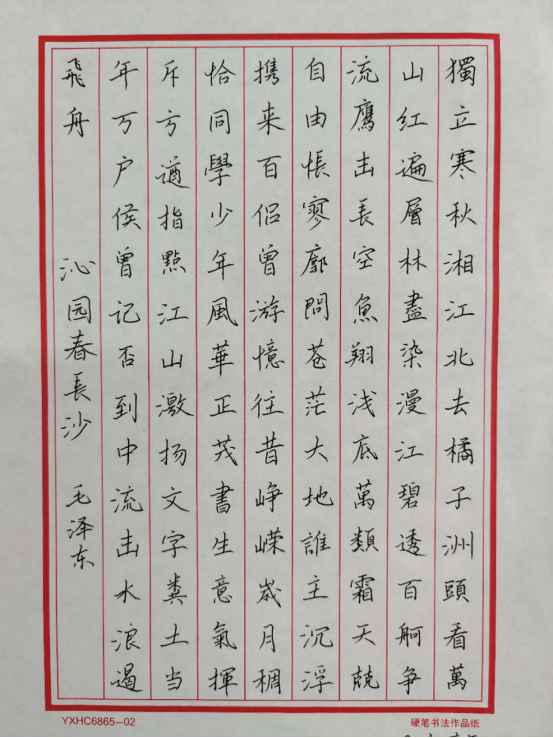 獨立寒秋湘江北去橘子洲頭看萬
山红遍層林盡染漫江碧透百舸争
流鷹击長空魚翔浅底萬類霜天兢
自由悵寥廓問苍茫大地誰主沉浮
携来百侣曾游憶往昔峥嵘歲月稠
恰同學少年風華正茂書生意氣揮
斥方遒指點江山激扬文字糞土当
年万户侯曾记否到中流击水浪遏
飛舟 沁园春長沙 毛泽东
YXHC6865—02
硬笔书法作品纸